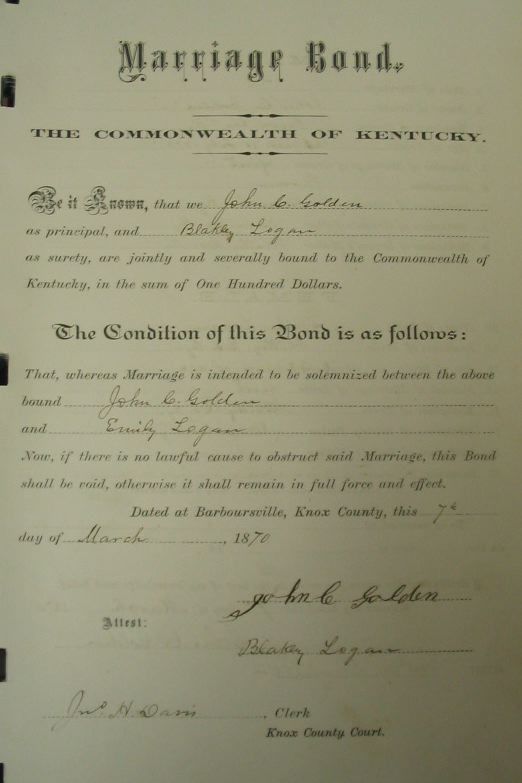 Marriage Bond.
THE COMMONWEALTH OF KENTUCKY.
Be it Known, that we John C. Golden
as principal, and Blakley Logan
as surety, are jointly and severally bound to the Commonwealth of
Kentucky, in the sum of One Hundred Dollars.
The Condition of this Bond is as follows:
That, whereas Marriage is intended to be solemnized between the above
bound John C. Golden
and Emily Logan
Now, if there is no lawful cause to obstruct said Marriage, this Bond
shall be void, otherwise it shall remain in full force and effect.
Dated at Barboursville, Knox County, this 7th
day of March, 1870
John C Golden
Attest:
Blakey Logan
Jno. H. Davis, Clerk
Knox County Court.